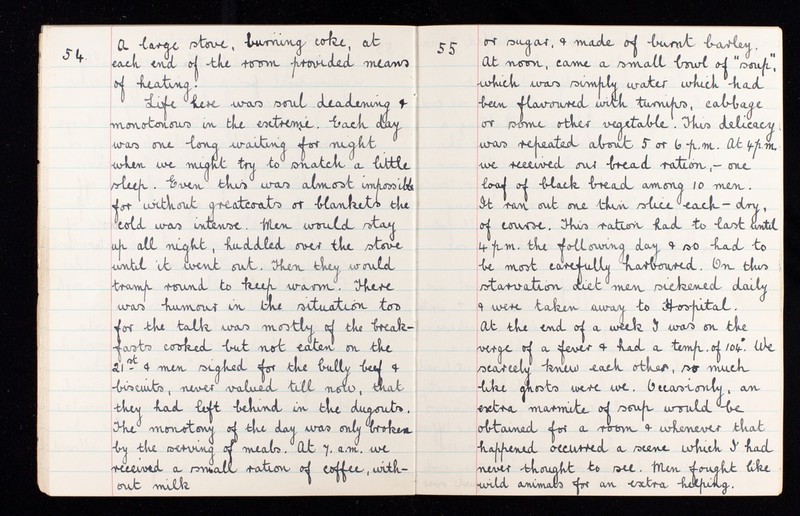 54.
A large stove, burning coke, at
each end of the room provided means
of heating.
Life here was soul deadening &
monotonous in the extreme. Each day
was one long waiting for night
when we might try to snatch a little
sleep. Even this was almost impossible
for without greatcoats or blankets the
cold was intense. Men would stay
up all night, huddled over the stove
until it went out. Then they would
tramp round to keep warm. There
was humour in the situation too
for the talk was mostly of the break-
fasts cooked but not eaten on the
21st & men sighed for the bully beef &
biscuits, never valued till now, that
they had left behind in the dugouts.
The monotony of the day was only broken
by the serving of meals. At 7. a.m. we
received a small ration of coffee, with-
out milk
55
or sugar, & made of burnt barley.
At noon, came a small bowl of "soup",
which was simply water which had
been flavoured with turnips, cabbage
or some other vegetable. This delicacy
was repeated about 5 or 6 p.m. At 4 p.m.
we received our bread ration, - one
loaf of black bread among 10 men.
It ran out one thin slice each - dry,
of course. This ration had to last until
4 p.m. the following day & so had to
be most carefully harboured. On this
starvation diet men sickened daily
& were taken away to Hospital.
At the end of a week I was on the
verge of a fever & had a temp. of 104°. We
scarcely knew each other, so much
like ghosts were we. Occasionly, an
extra marmite of soup would be
obtained for a room & whenever that
happened occurred a scene which I had
never thought to see. Men fought like
wild animals for an extra helping.